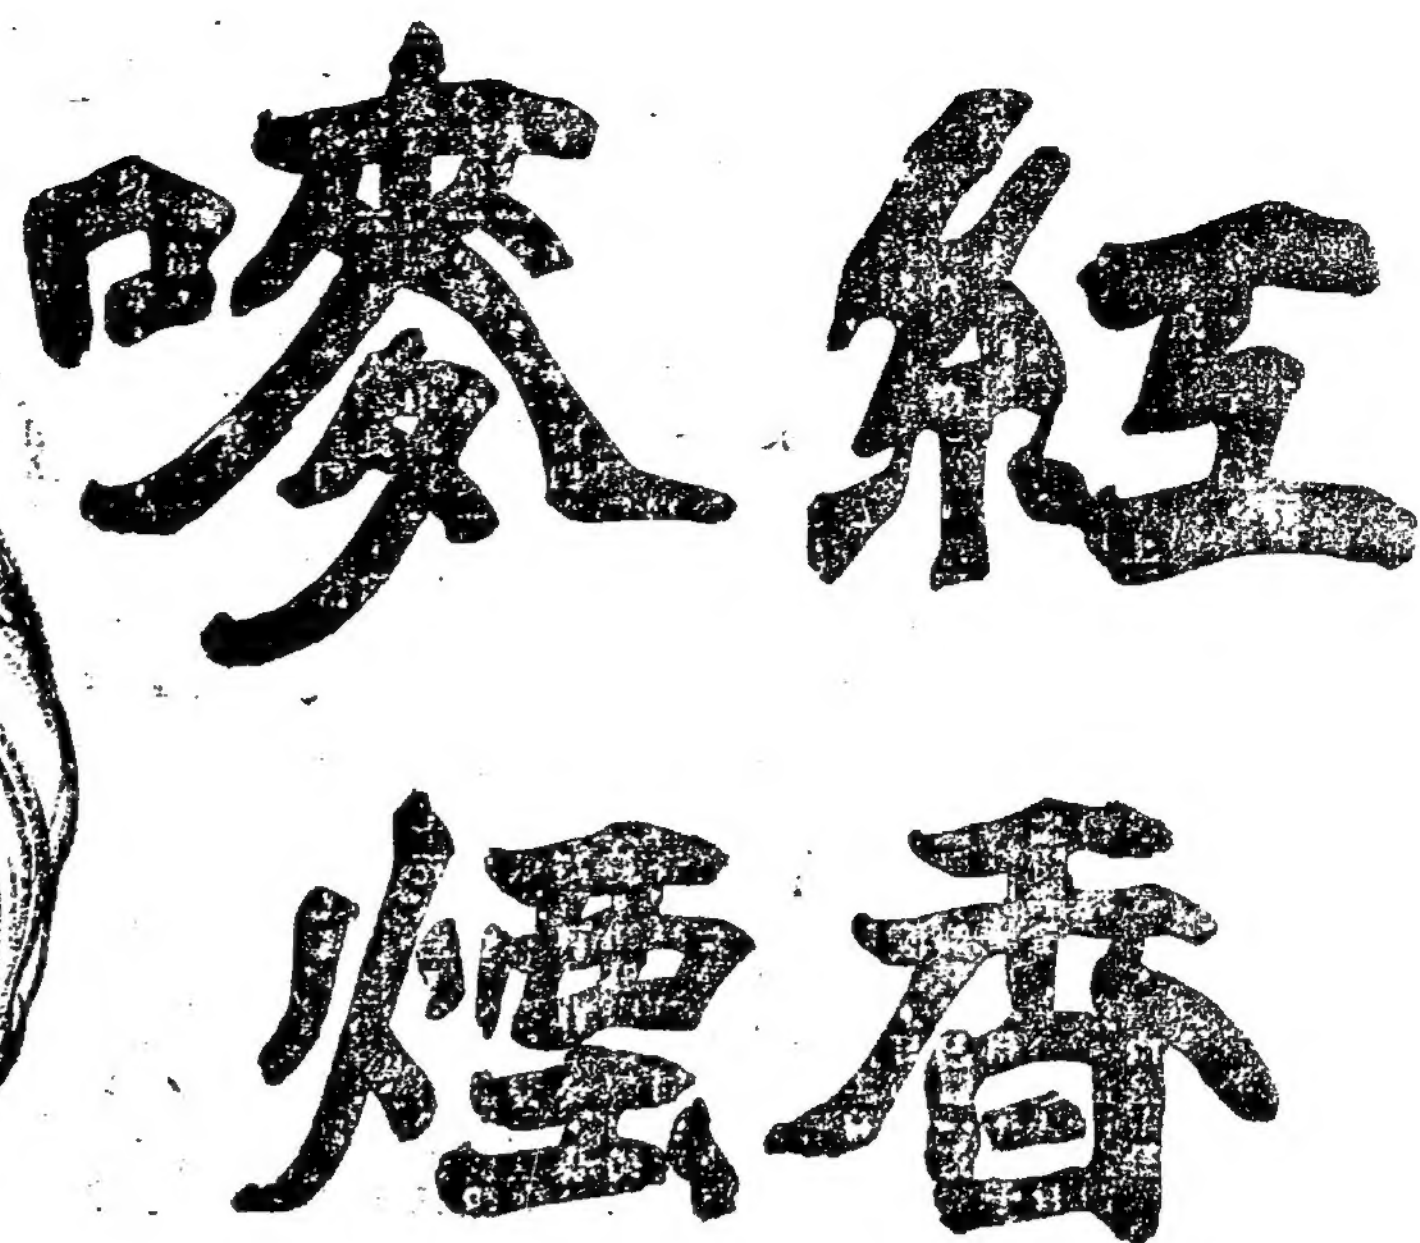 紅嘜
香煙